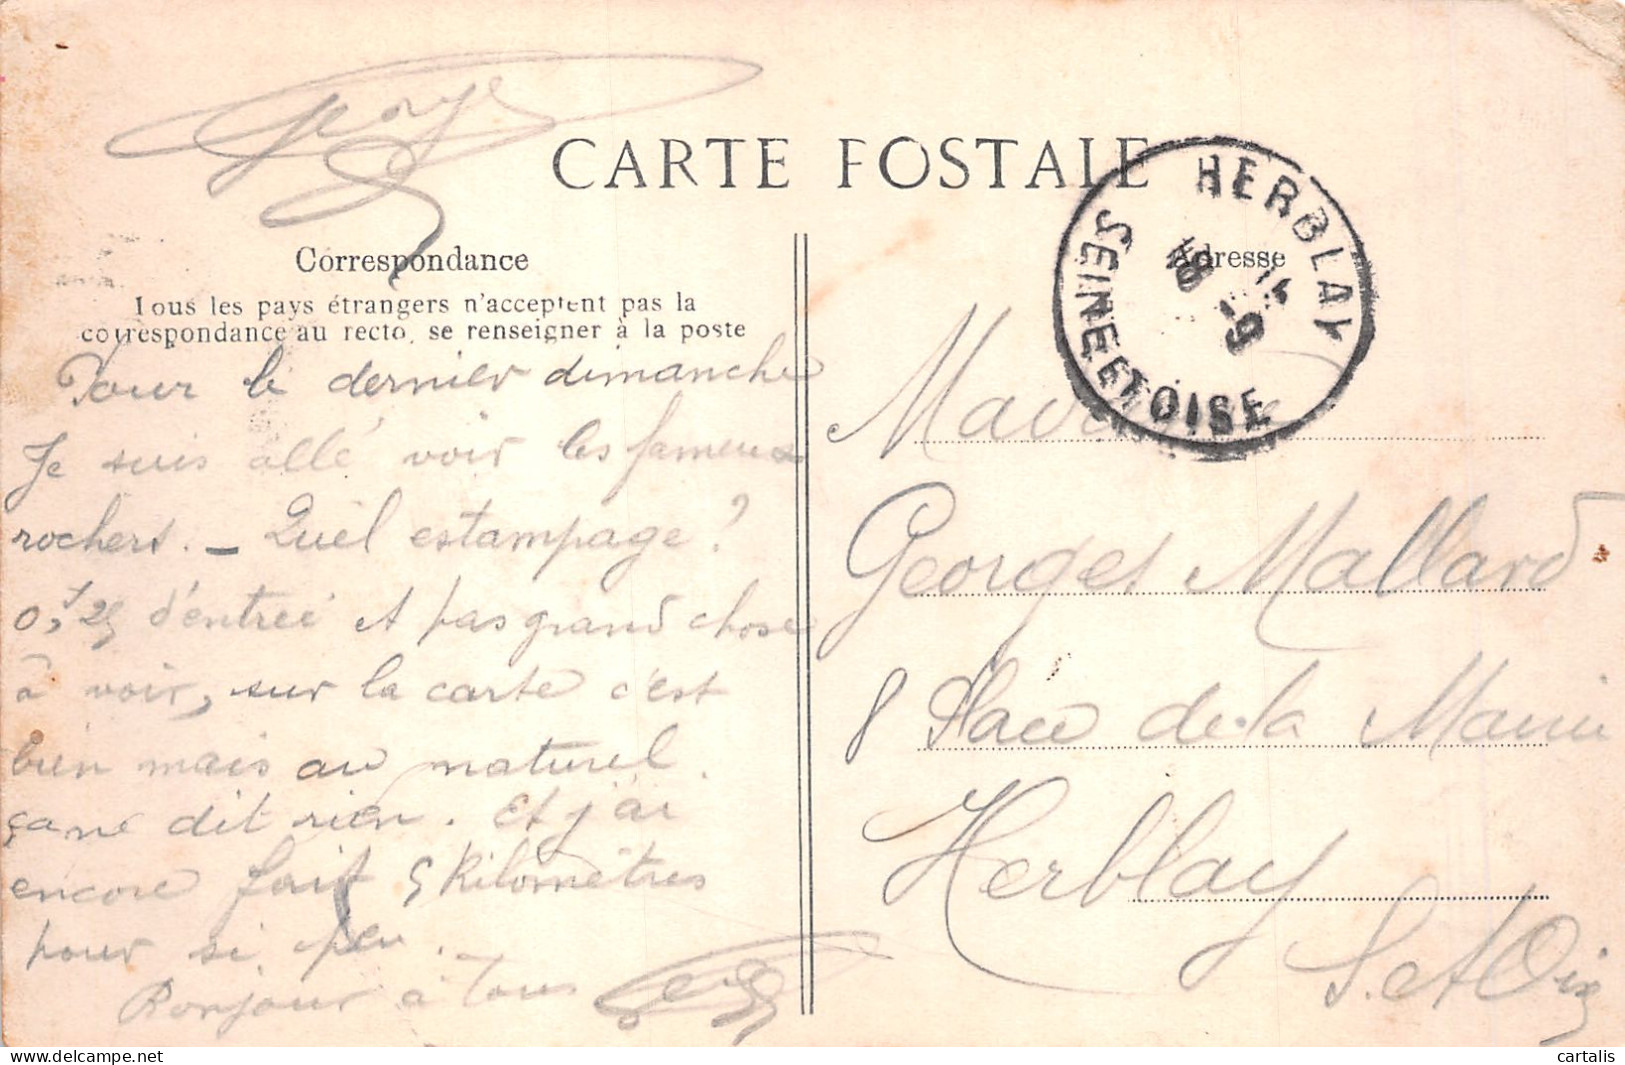 CARTE POSTALE
Correspondance
Tous les pays étrangers n'acceptent pas la
correspondance au recto, se renseigner à la poste
Pour le dernier dimanche
Je suis allé voir les fameux
rochers. — Quel estampage?
0,f25 d'entrée et pas grand chose
à voir, sur la carte c'est
bien mais au naturel
ça ne dit rien. Et j'ai
encore fait 5 kilomètres
pour si peu.
Bonjour à Tous
HERBLAY
SEINE ET OISE
18 - 9
14
Adresse
Georges Mallard
8 Place de la Mairie
Herblay
S. et Oise
www.delcampe.net
cartalis